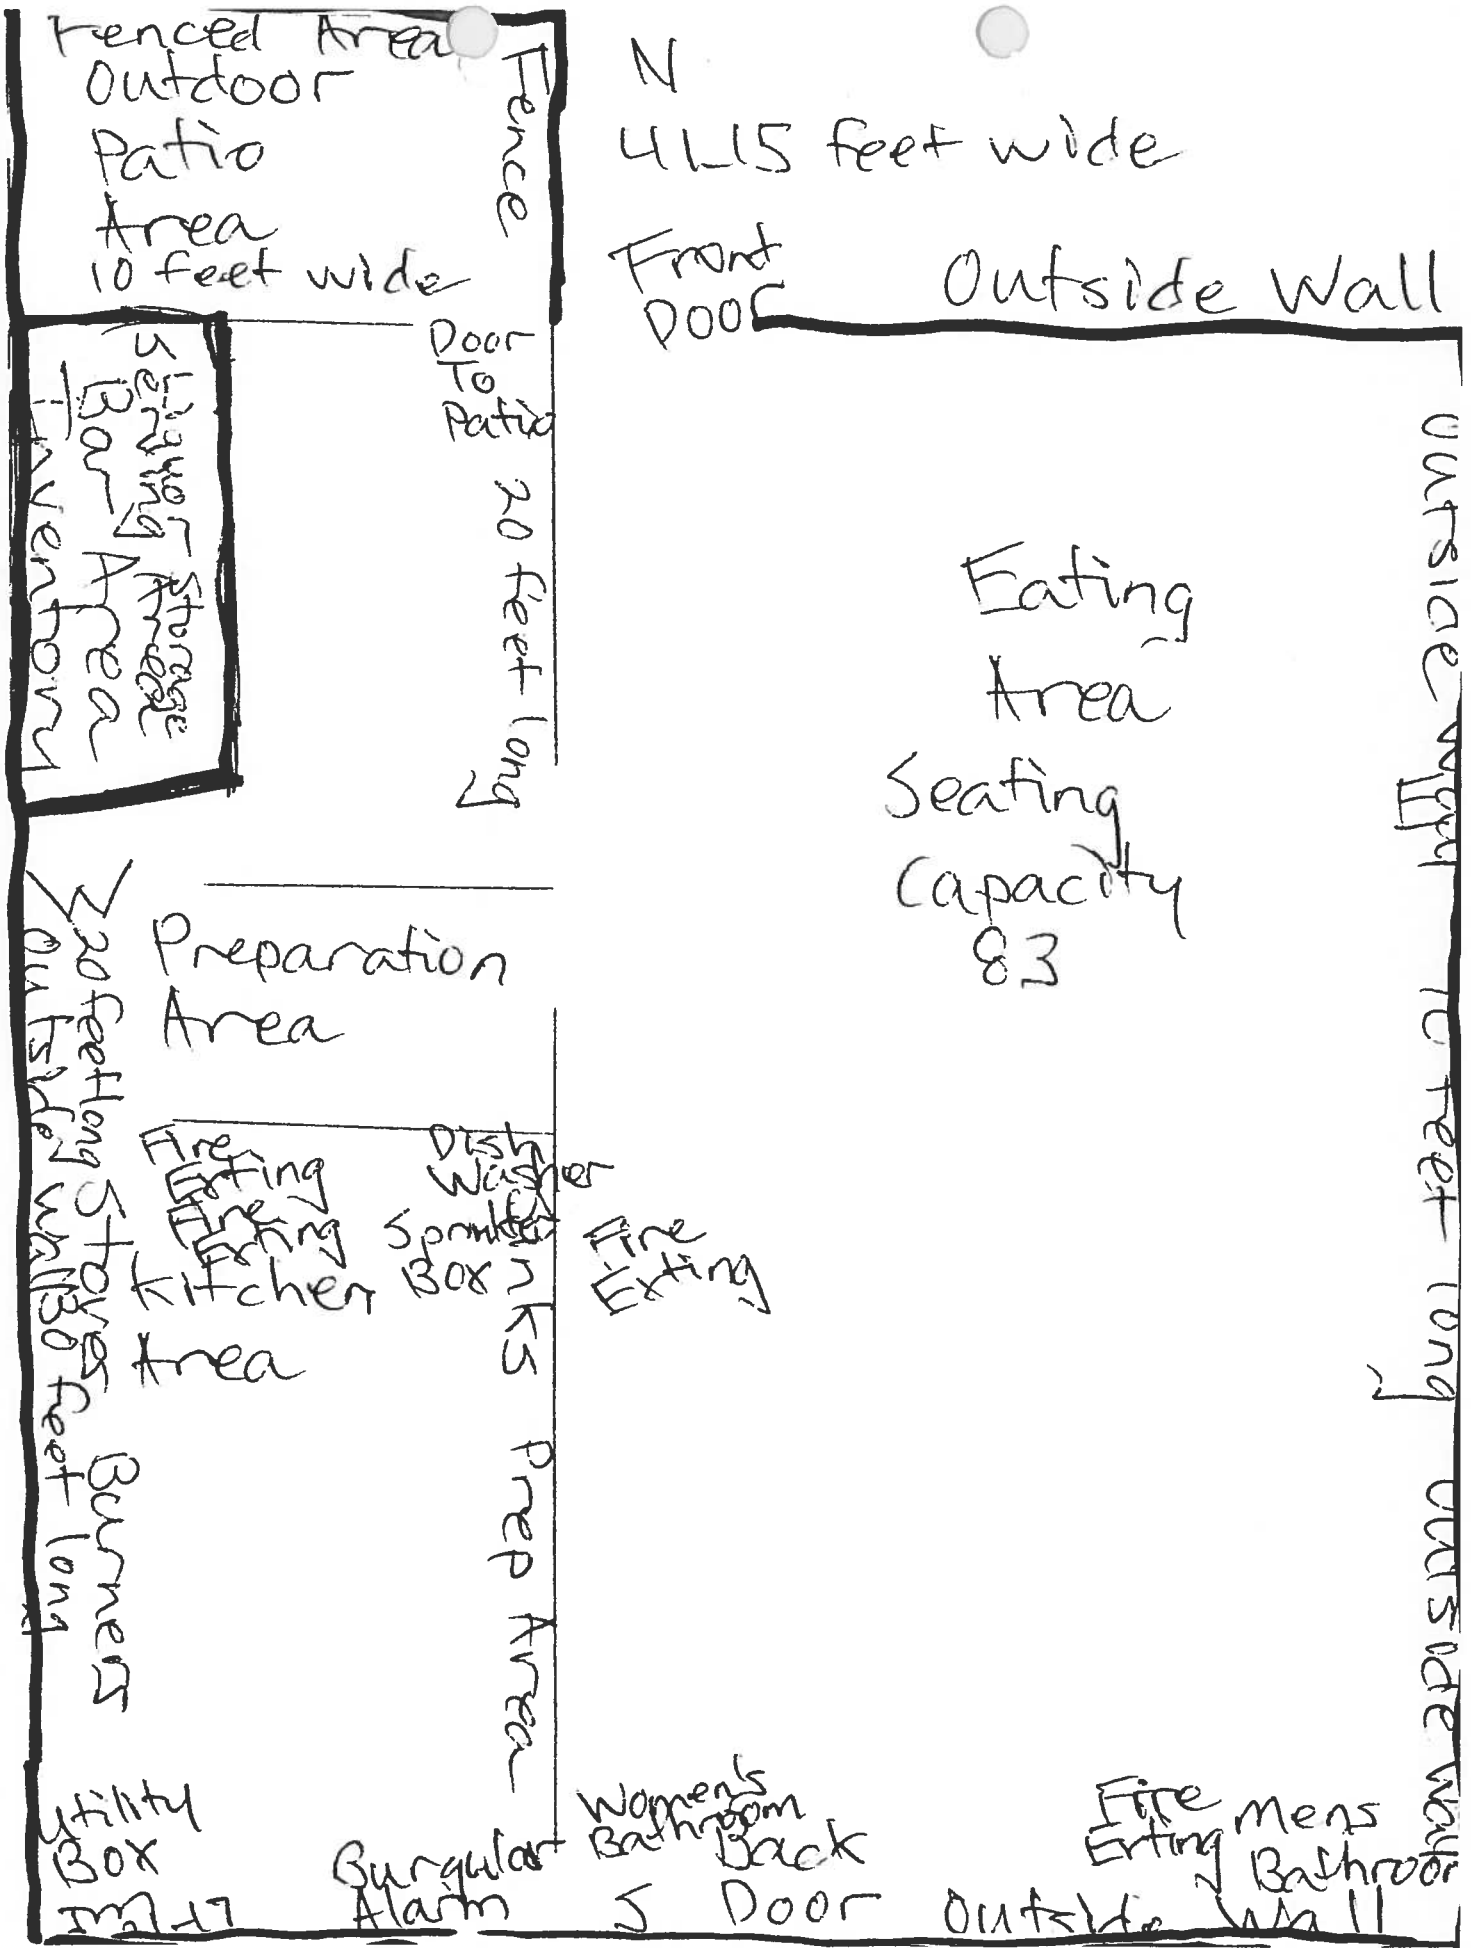 Fenced Area
Outdoor
Patio
Area
10 feet wide
Fence
N
41.15 feet wide
Front
Door
Outside Wall
Door
To
Patio
20 feet long
Liquor Storage
Serving Area
Bar Area
Inventory
Eating
Area
Seating
Capacity
83
Outside Wall
E
70 feet long
Outside Wall
W
Preparation
Area
20 feet long
Stoves
Burners
Outside Wall 80 feet long
Fire
Exting
Fire
Exting
Kitchen
Area
Dish
Washer
Sprinkler
Box
Sinks
Prep Area
Fire
Exting
Utility
Box
Burgular
Alarm
Women's
Bathroom
Back
Door
S
Fire
Exting
Mens
Bathroom
Outside Wall